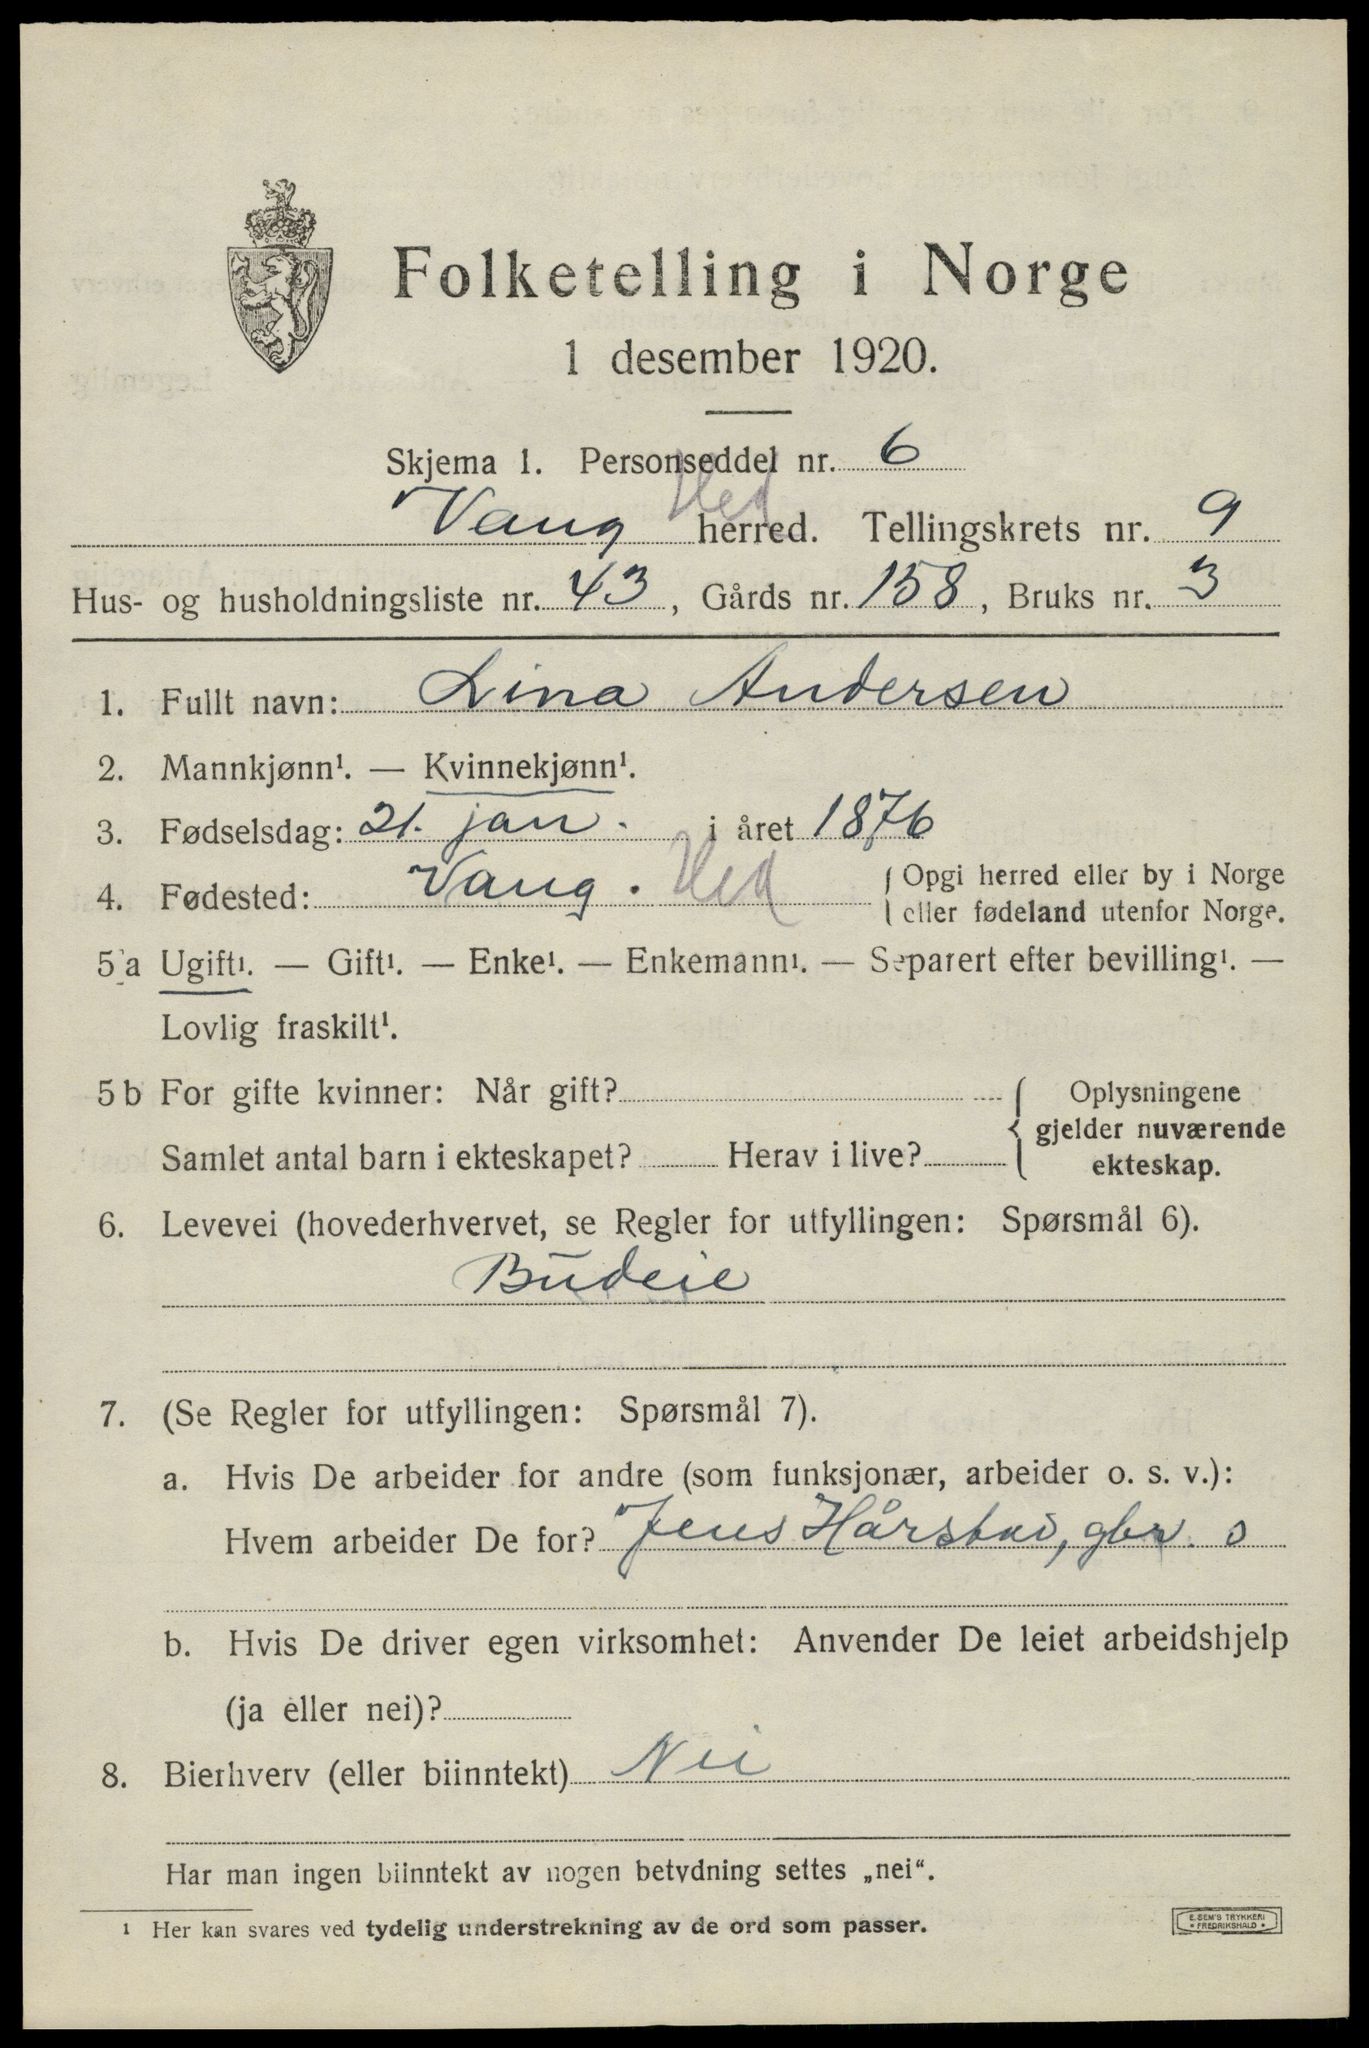 Folketelling i Norge
1 desember 1920.
Skjema 1. Personseddel nr. 6
Vang Hed herred. Tellingskrets nr. 9
Hus- og husholdningsliste nr. 43, Gårds nr. 158, Bruks nr. 3
1. Fullt navn: Lina Andersen
2. Mannkjønn¹. — Kvinnekjønn¹.
3. Fødselsdag: 21. jan. i året 1876
4. Fødested: Vang. Hed { Opgi herred eller by i Norge
eller fødeland utenfor Norge.
5 a Ugift¹. — Gift¹. — Enke¹. — Enkemann¹. — Separert efter bevilling¹. —
Lovlig fraskilt¹.
5 b For gifte kvinner: Når gift? { Oplysningene
gjelder nuværende
Samlet antal barn i ekteskapet? Herav i live? ekteskap.
6. Levevei (hovederhvervet, se Regler for utfyllingen: Spørsmål 6).
Budeie
7. (Se Regler for utfyllingen: Spørsmål 7).
a. Hvis De arbeider for andre (som funksjonær, arbeider o. s. v.):
Hvem arbeider De for? Jens Hårstad, gbr. o
b. Hvis De driver egen virksomhet: Anvender De leiet arbeidshjelp
(ja eller nei)?
8. Bierhverv (eller biinntekt) Nei
Har man ingen biinntekt av nogen betydning settes „nei“.
¹ Her kan svares ved tydelig understrekning av de ord som passer.
E. SEM'S TRYKKERI
• FREDRIKSHALD •